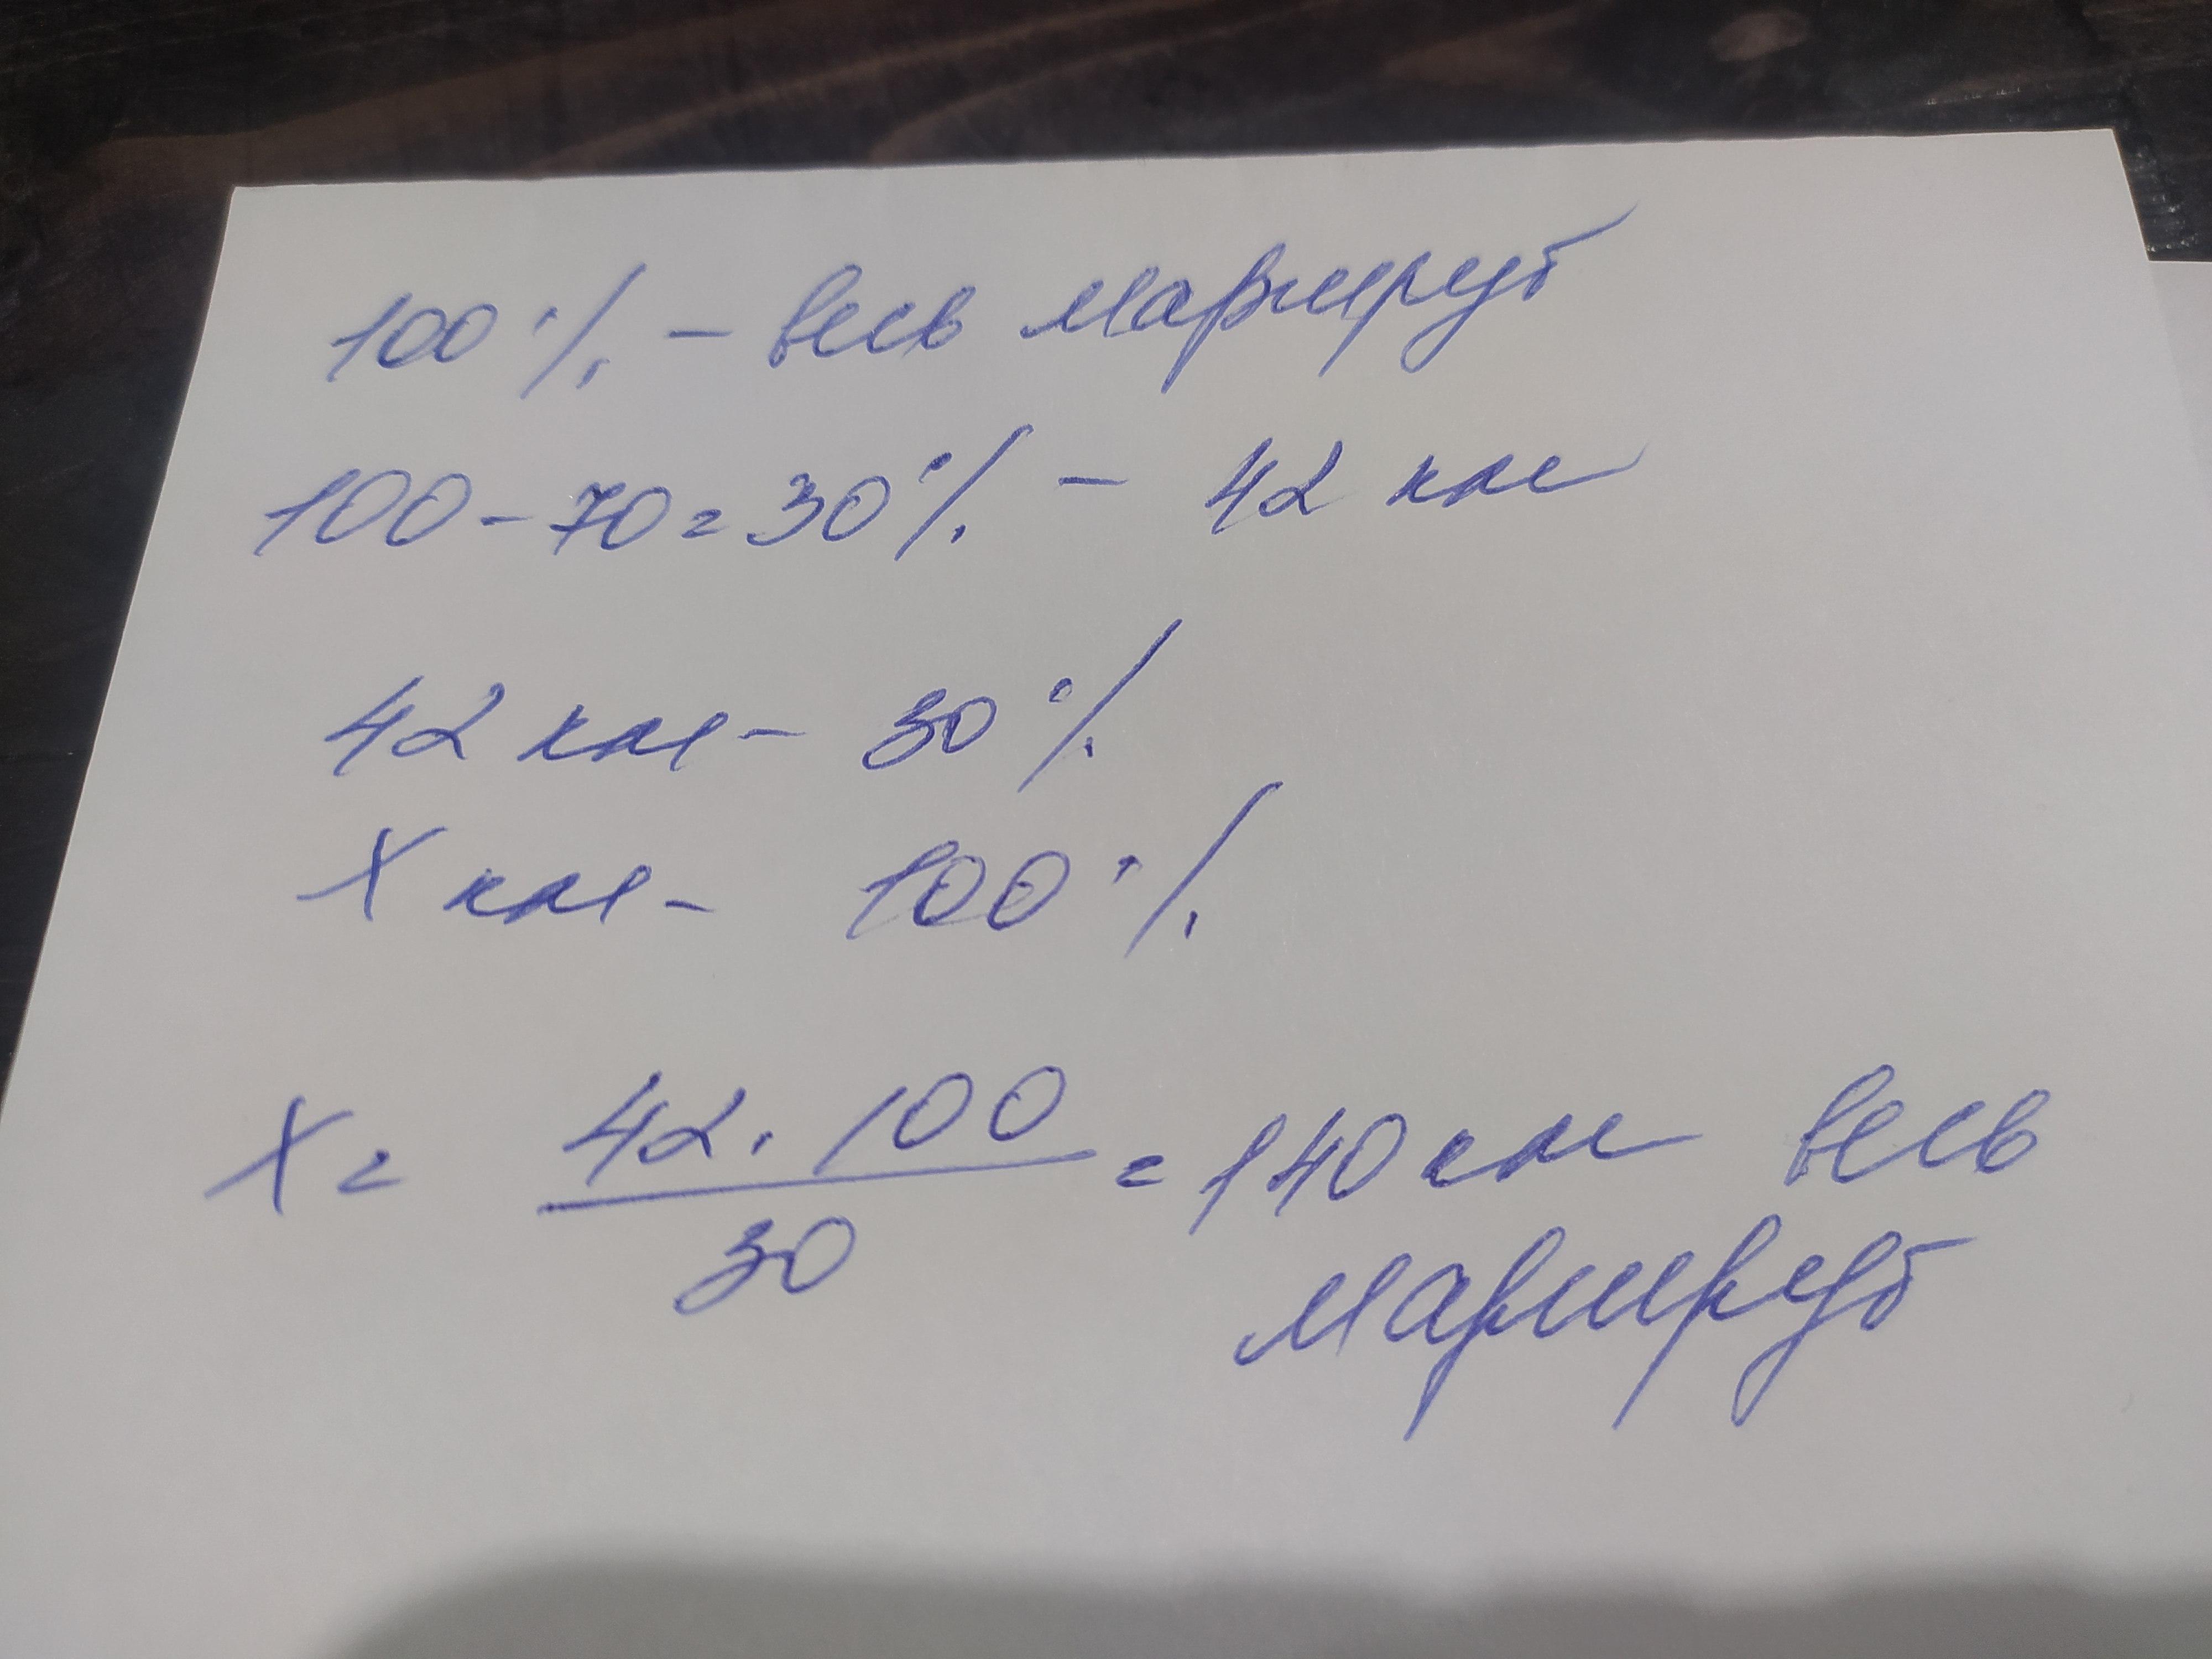 100% - весь маршрут
100 - 70 = 30% - 42 км
42 км - 30%
X км - 100%
X = 42 · 100 / 30 = 140 км весь
маршрут